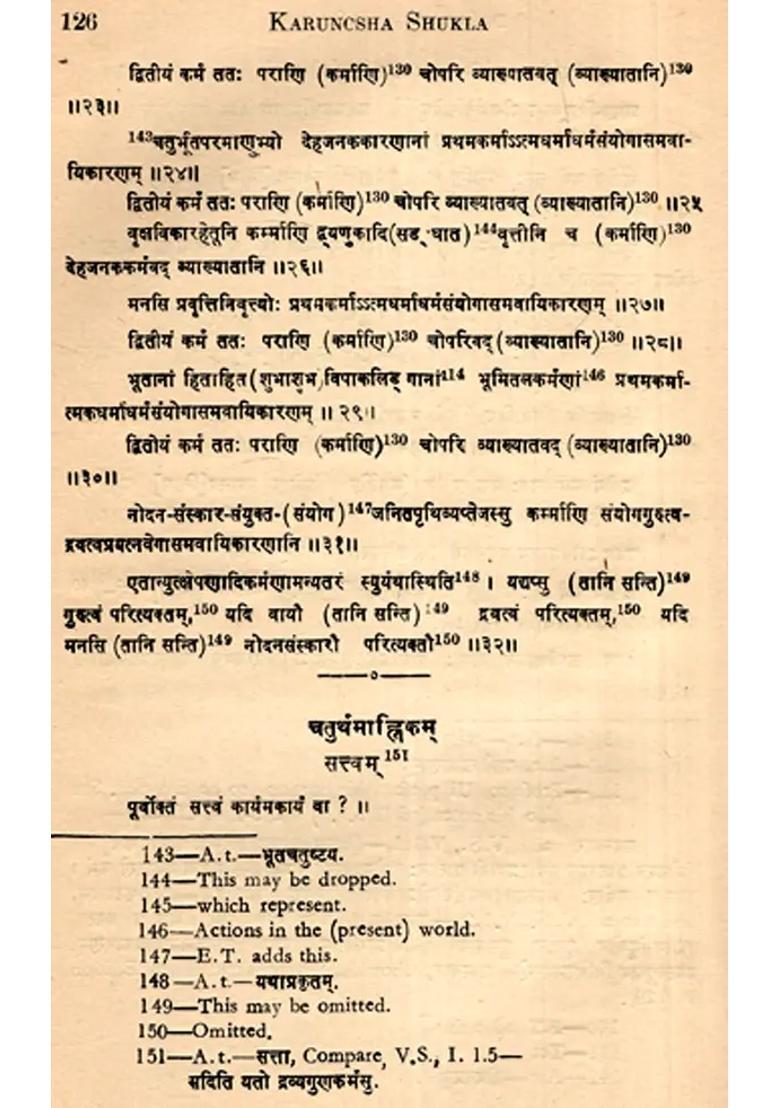 126 KARUNCSHA SHUKLA
द्वितीयं कर्म ततः पराणि (कर्माणि)130 चोपरि व्याख्यातवत् (व्याख्यातानि)130
॥२३॥
143चतुर्भूतपरमाणुभ्यो देहजनककारणानां प्रथमकर्माऽऽत्मधर्माधर्मसंयोगासमवा-
यिकारणम् ॥२४॥
द्वितीयं कर्म ततः पराणि (कर्माणि)130 चोपरि व्याख्यातवत् (व्याख्यातानि)130 ॥२५
वृक्षविकारहेतूनि कर्म्माणि द्व्यणुकादि(सङ्घात)144वृत्तीनि च (कर्माणि)130
देहजनककर्मवद् व्याख्यातानि ॥२६॥
मनसि प्रवृत्तिनिवृत्त्योः प्रथमकर्माऽऽत्मधर्माधर्मसंयोगासमवायिकारणम् ॥२७॥
द्वितीयं कर्म ततः पराणि (कर्माणि)130 चोपरिवद् (व्याख्यातानि)130 ॥२८॥
भूतानां हिताहित(शुभाशुभ)विपाकलिङ्गानां114 भूमितलकर्मणां146 प्रथमकर्मा-
त्मकधर्माधर्मसंयोगासमवायिकारणम् ॥ २९॥
द्वितीयं कर्म ततः पराणि (कर्माणि)130 चोपरि व्याख्यातवद् (व्याख्यातानि)130
॥३०॥
नोदन-संस्कार-संयुक्त-(संयोग)147जनितपृथिव्यप्तेजस्सु कर्म्माणि संयोगगुरुत्व-
द्रवत्वप्रयत्नवेगासमवायिकारणानि ॥३१॥
एतान्युत्क्षेपणादिकर्मणामन्यतरं स्युर्यथास्थिति148 । यद्यप्सु (तानि सन्ति)149
गुरुत्वं परित्यक्तम्,150 यदि वायौ (तानि सन्ति)149 द्रवत्वं परित्यक्तम्,150 यदि
मनसि (तानि सन्ति)149 नोदनसंस्कारौ परित्यक्तौ150 ॥३२॥
चतुर्थमाह्निकम्
सत्त्वम्151
पूर्वोक्तं सत्त्वं कार्यमकार्यं वा ? ॥
143—A.t.—भूतचतुष्टय.
144—This may be dropped.
145—which represent.
146—Actions in the (present) world.
147—E.T. adds this.
148—A.t.—यथाप्रकृतम्.
149—This may be omitted.
150—Omitted.
151—A.t.—सत्ता, Compare, V.S., I. 1.5—
सदिति यतो द्रव्यगुणकर्मसु.